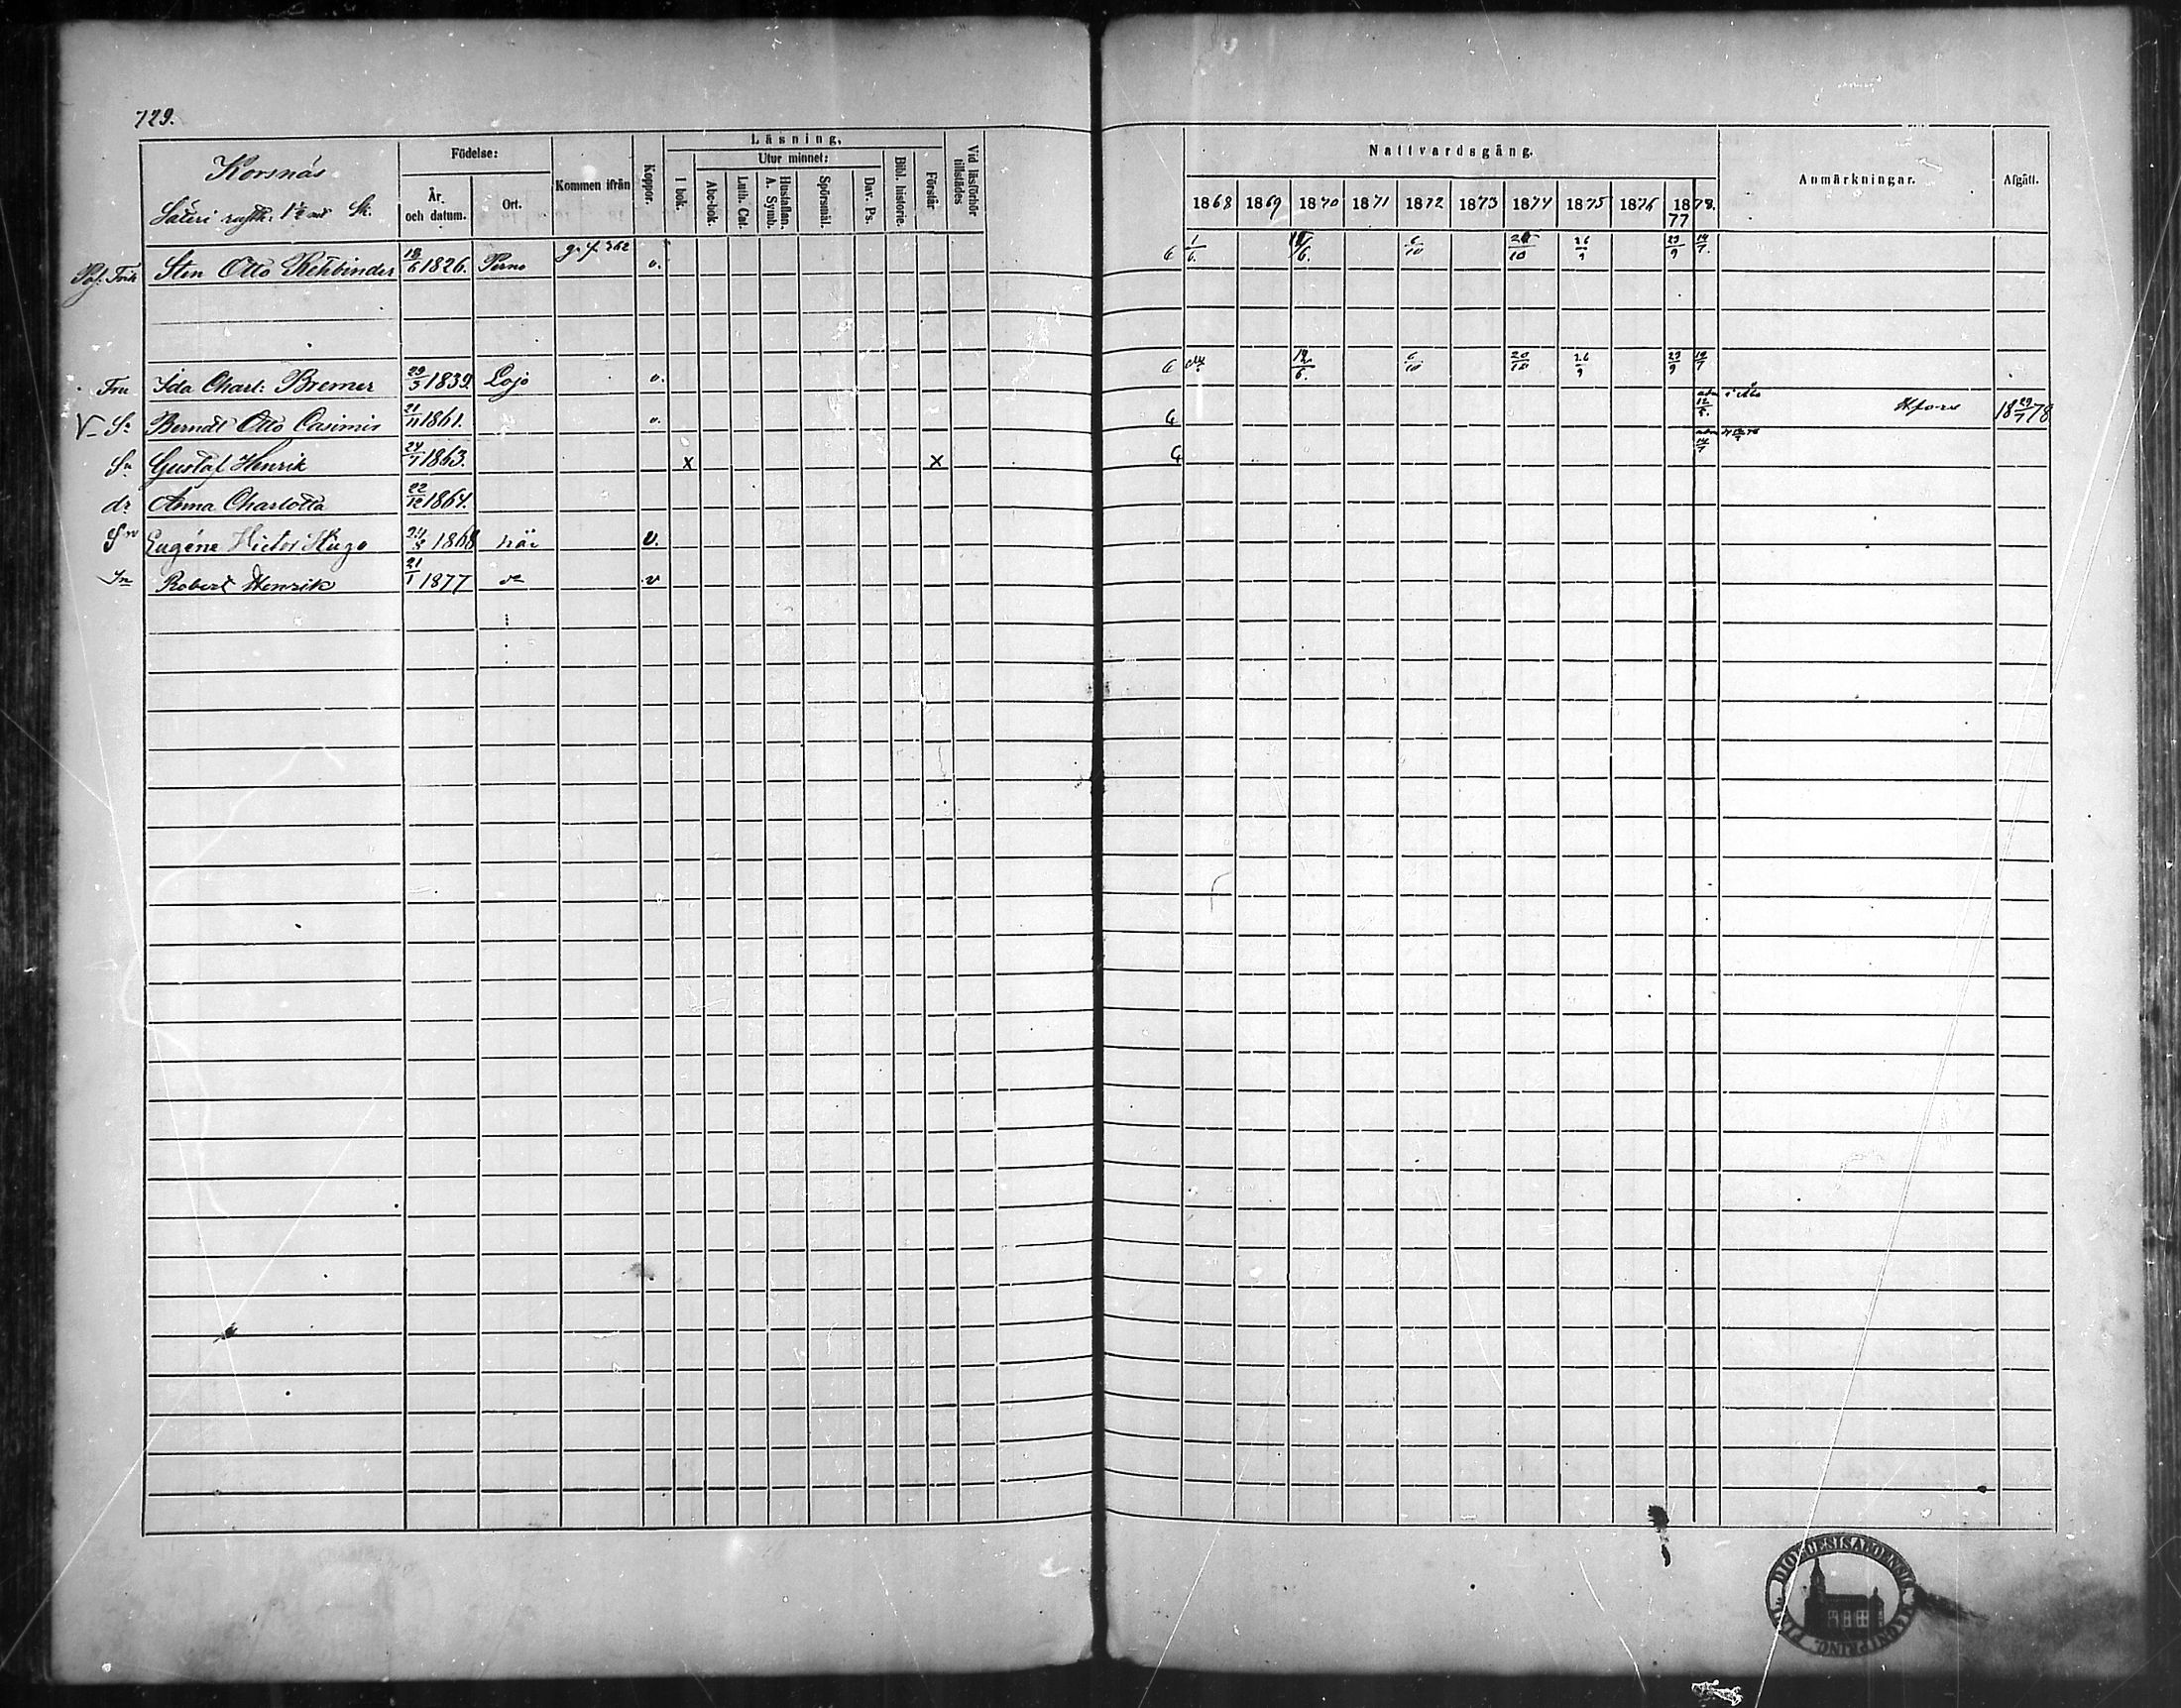 729.
Korsnäs
Säteri rustth. 1½ mt Sk.
Födelse:
År och datum.
Ort.
Kommen ifrån
Koppor.
Läsning,
I bok.
Utur minnet:
Abc-bok.
Luth. Cat.
Hustaflan. A. Symb.
Spörsmål.
Dav. Ps.
Bibl. historie.
Förstår
Vid läsförhör tillstädes
Nattvardsgång.
1868 1869 1870 1871 1872 1873 1874 1875 1876 1877 1878.
Anmärkningar.
Afgått.
Sten Otto Rehbinder 18/6 1826. Perno g. f. 362 v. 1/6. 6/10 26/9 23/9 14/7.
Fru Ida Charl: Bremer 29/3 1839. Lojo v. 12/6. 6/10 20/10 26/9 23/9 14/7
V Sn Berndt Otto Casimir 21/11 1861. v. i Åbo Hfors 18 29/7 78
Sn Gustaf Henrik 24/7 1863. x x 14/7
dr Anna Charlotta 22/12 1864.
Sn Eugéne Victor Hugo 24/8 1868 här v.
Sn Robert Henrik 21/1 1877 do v